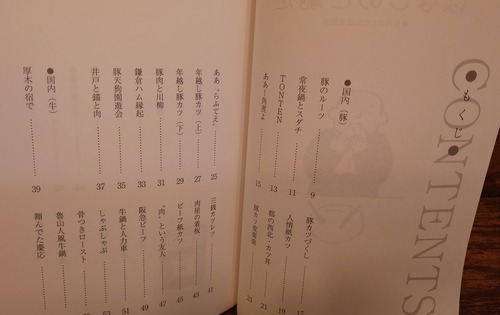 ●もくじ●
CONTENTS
●国内（豚）
豚のルーツ……9
常夜鍋とスダチ……11
TONTEN……13
ああ！角煮よ……15
豚カツづくし……17
人情紙カツ……19
都の西北・カツ丼……21
ああ、らふてえ……25
年越し豚カツ（上）……27
年越し豚カツ（下）……29
豚肉と川柳……31
鎌倉ハム縁起……33
豚天狗園遊会……35
井戸と猫と肉……37
●国内（牛）
厚木の宿で……39
三銭カツレツ……41
肉屋の看板……43
ビーフ紙カツ……45
"肉"という友人……47
阪急ビーフ……49
牛鍋と人力車……51
しゃぶしゃぶ
骨つきロースト
魯山人風牛鍋
翔んでた慶応